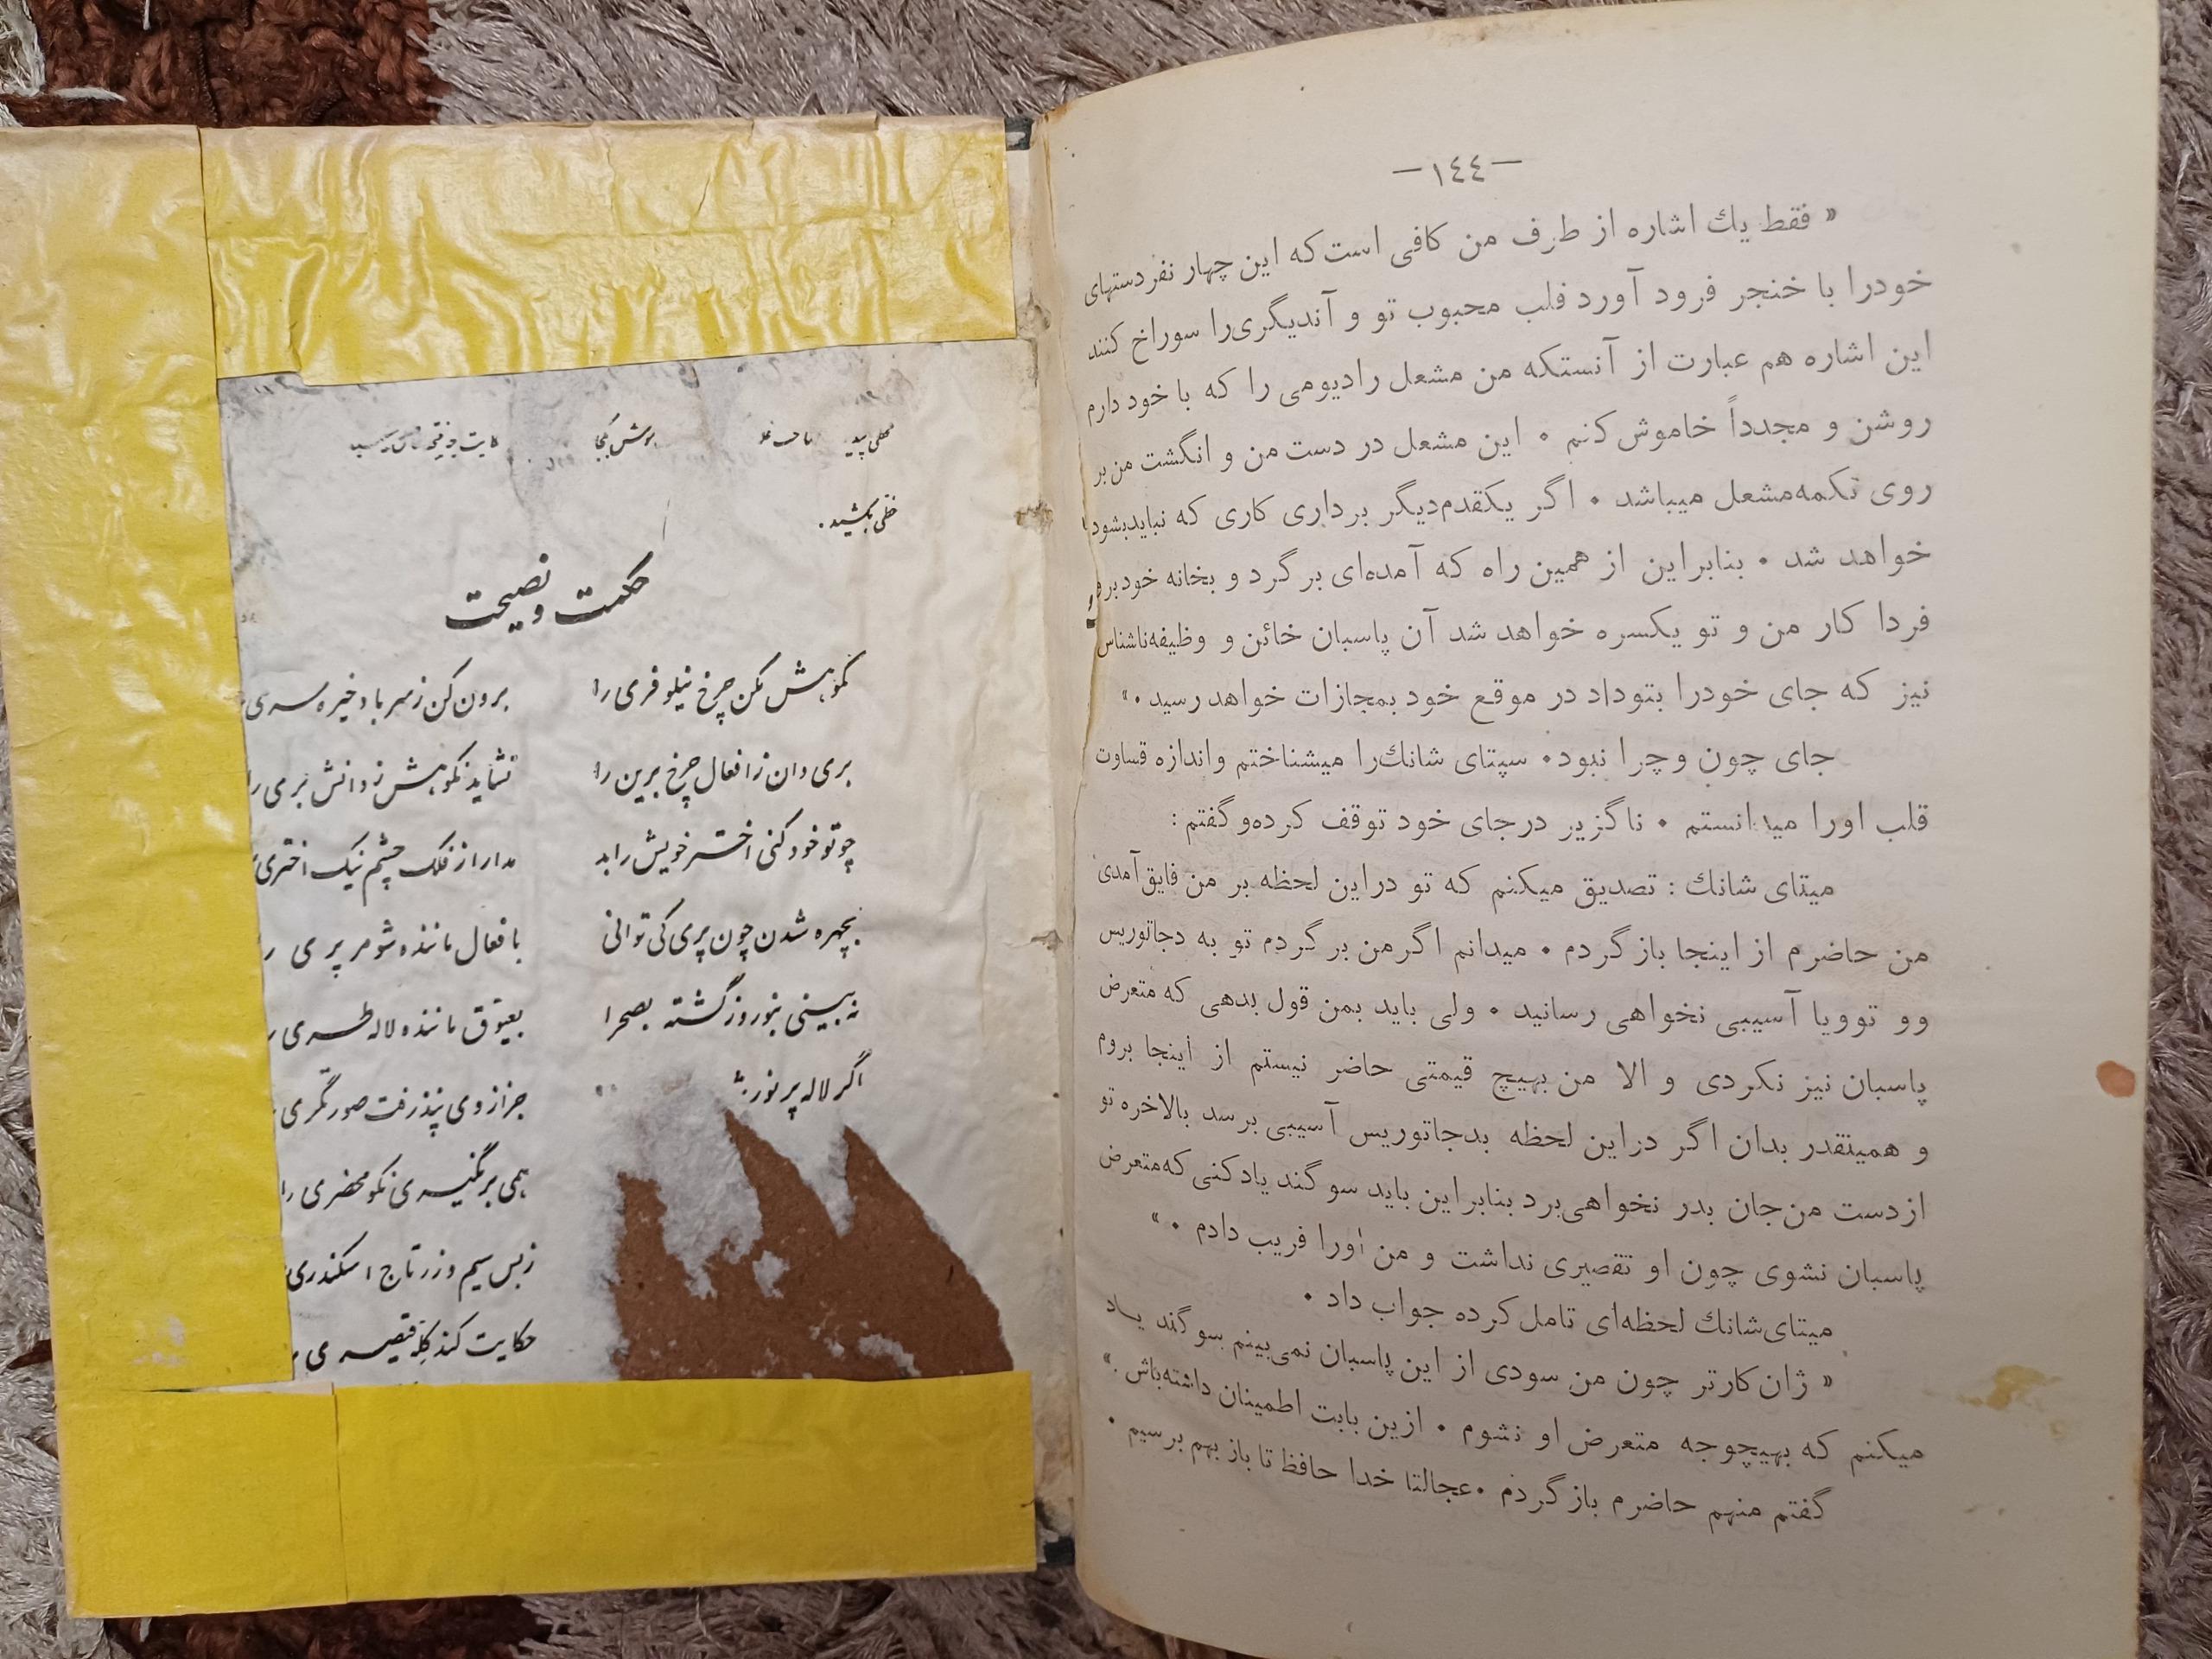 —١٤٤—
« فقط یك اشاره از طرف من کافی است که این چهار نفر دستهای
خودرا با خنجر فرود آورد قلب محبوب تو و آندیگری‌را سوراخ کنند
این اشاره هم عبارت از آنستکه من مشعل رادیومی را که با خود دارم
روشن و مجدداً خاموش کنم . این مشعل در دست من و انگشت من بر
روی تکمه مشعل میباشد . اگر یکقدم‌دیگر برداری کاری که نباید بشود
خواهد شد . بنابراین از همین راه که آمده‌ای برگرد و بخانه خود برو
فردا کار من و تو یکسره خواهد شد آن پاسبان خائن و وظیفه‌ناشناس
نیز که جای خودرا بتوداد در موقع خود بمجازات خواهد رسید . »
جای چون وچرا نبود . سپتای شانك‌را میشناختم واندازه قساوت
قلب اورا میدانستم . ناگزیر درجای خود توقف کرده‌وگفتم :
میتای شانك : تصدیق میکنم که تو دراین لحظه بر من فایق آمدی
من حاضرم از اینجا بازگردم . میدانم اگرمن برگردم تو به دجاتوریس
وو توویا آسیبی نخواهی رسانید . ولی باید بمن قول بدهی که متعرض
پاسبان نیز نکردی و الا من بهیچ قیمتی حاضر نیستم از اینجا بروم
و همینقدر بدان اگر دراین لحظه بدجاتوریس آسیبی برسد بالاخره تو
ازدست من‌جان بدر نخواهی‌برد بنابراین باید سوگند یادکنی که‌متعرض
پاسبان نشوی چون او تقصیری نداشت و من اورا فریب دادم . »
میتای‌شانك لحظه‌ای تامل کرده جواب داد .
« ژان‌کارتر چون من سودی از این پاسبان نمی‌بینم سوگند یاد
میکنم که بهیچوجه متعرض او نشوم . ازین بابت اطمینان داشته‌باش . »
گفتم منهم حاضرم بازگردم . عجالتا خدا حافظ تا باز بهم برسیم .
خطی بکشید .
حکمت و نصیحت
نکوهش مکن چرخ نیلوفری را برون کن زسر باد خیره سری
بری دان زافعال چرخ برین را نشاید نکوهش ز دانش بری را
چو تو خود کنی اختر خویش را بد مدار از فلک چشم نیک اختری
بچهره شدن چون پری کی توانی با فعال مانند شو مر پری ر
نه بینی بنوروز گشته بصحرا بعیوق مانند لاله طری ر
اگر لاله پر نور جز از وی نپذرفت صورتگری
همی برنگیری نکو محضری را
زبس سیم و زر تاج اسکندری
حکایت کند کله قیصری